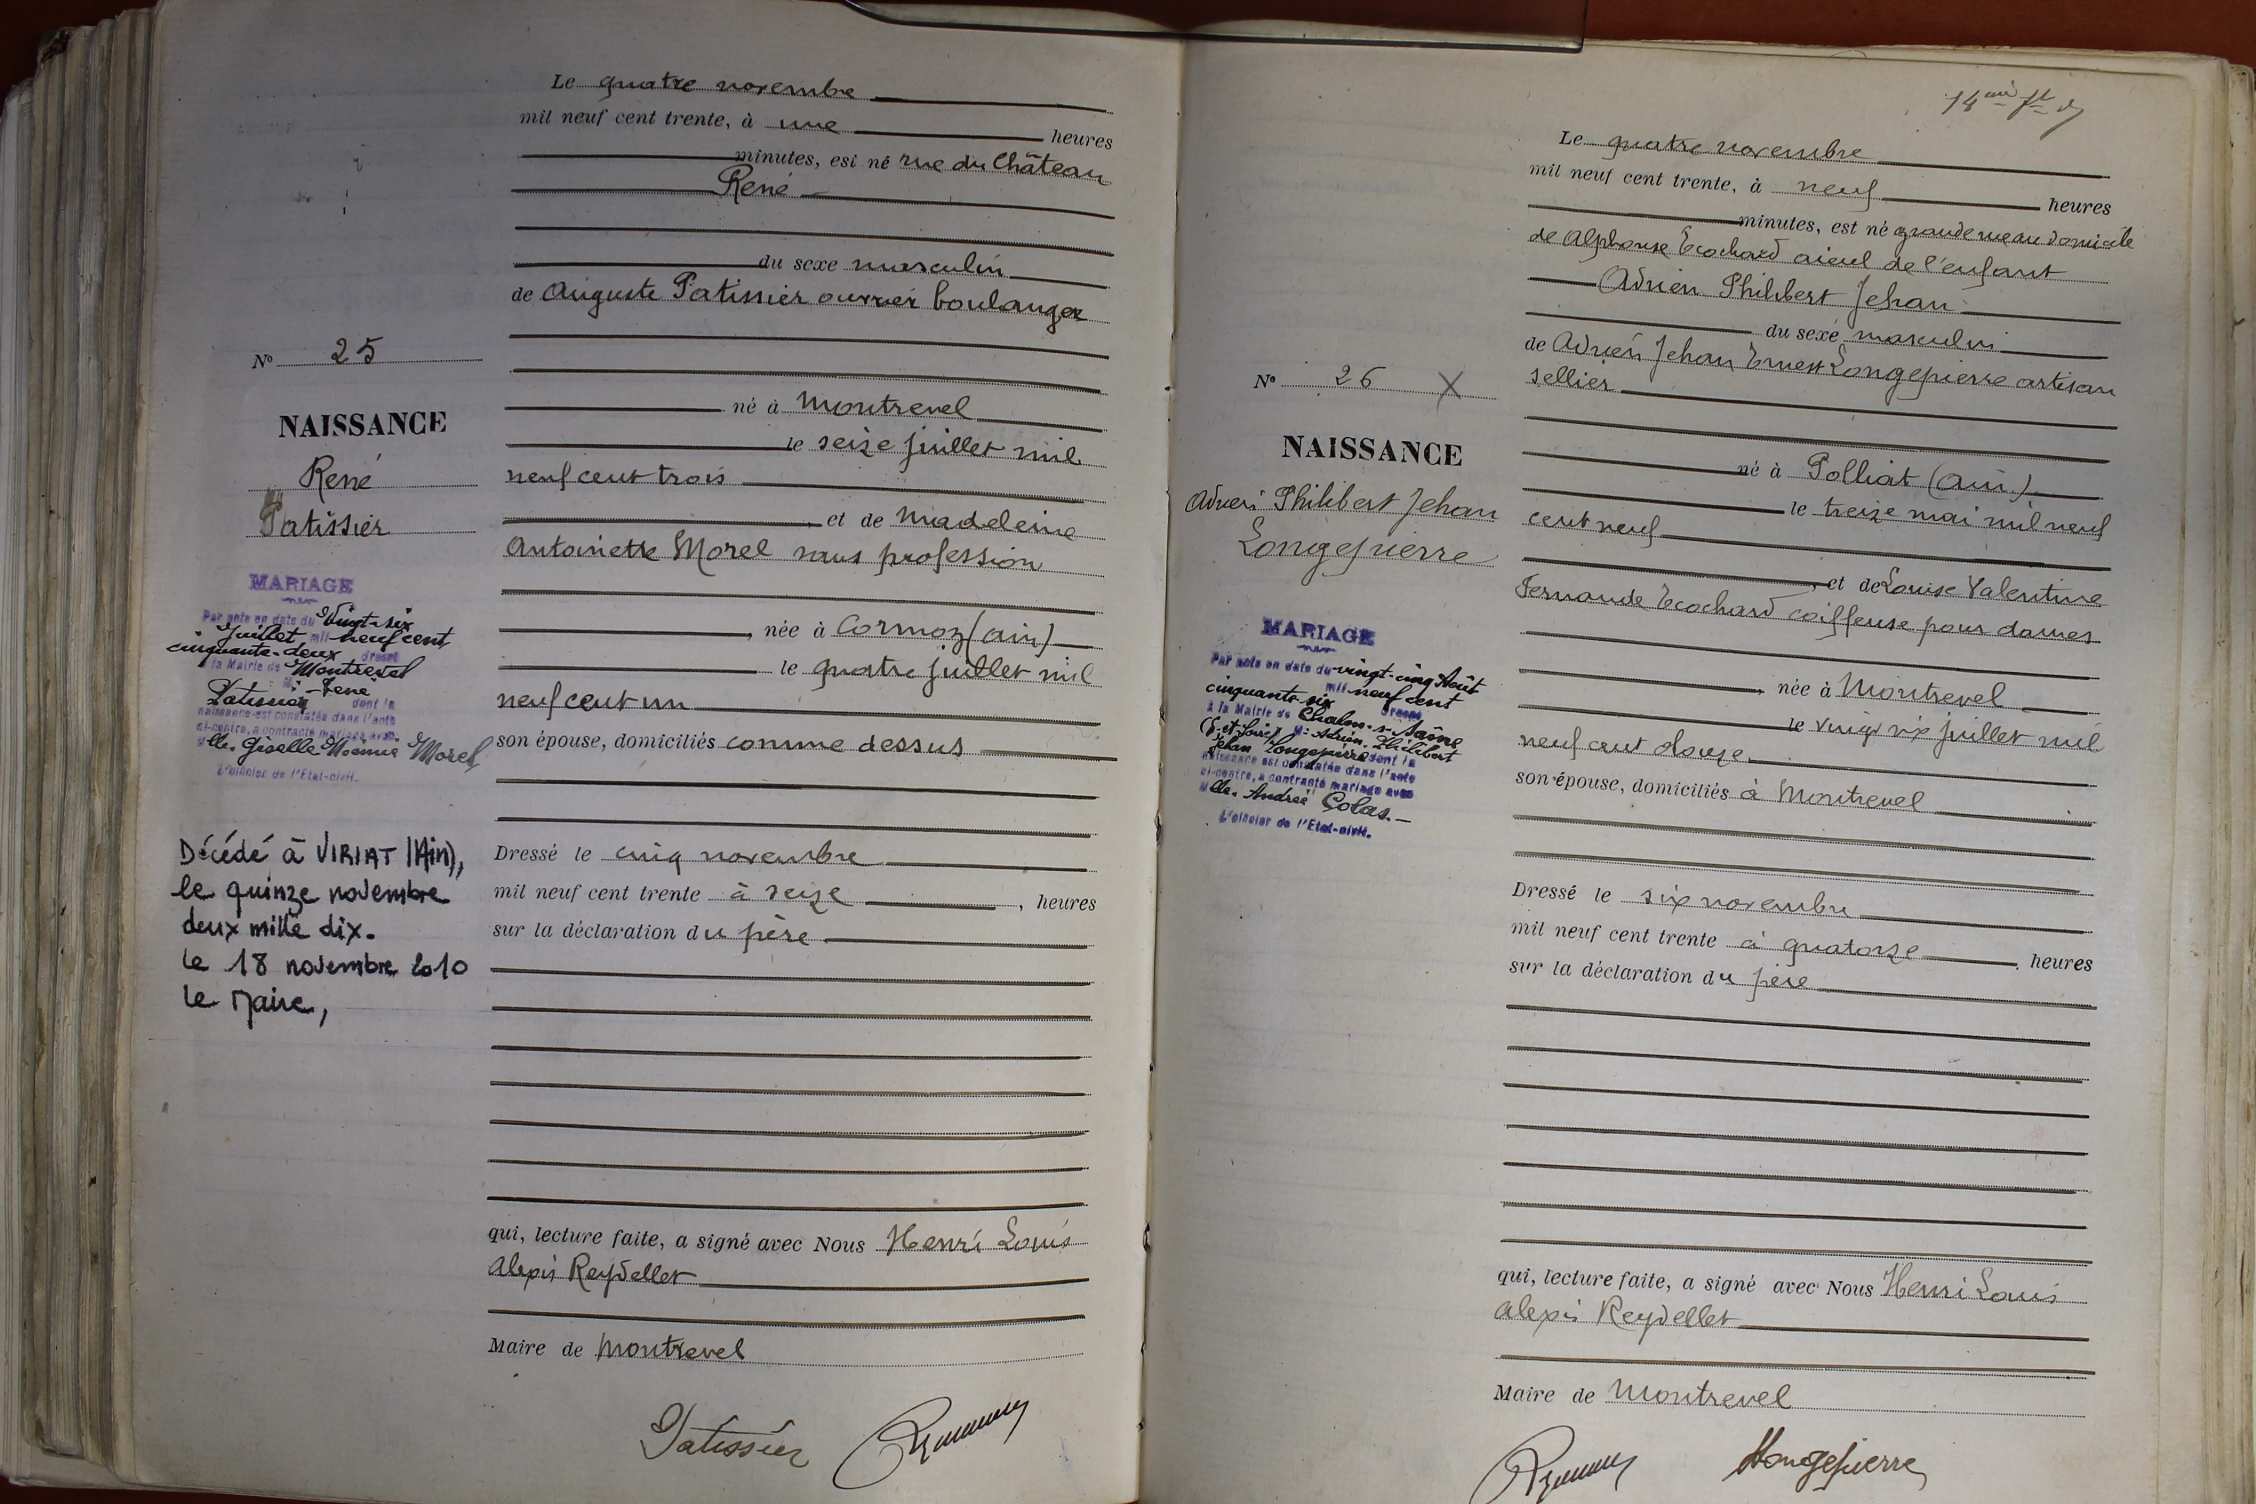 Le quatre novembre
mil neuf cent trente, à une heures
minutes, est né rue du Château
René
du sexe masculin
de Auguste Patissier ouvrier boulanger
né à Montrevel
le seize juillet mil
neuf cent trois
et de Madeleine
Antoinette Morel sans profession
, née à Cormoz (Ain)
le quatre juillet mil
neuf cent un
son épouse, domiciliés comme dessus
Dressé le cinq novembre
mil neuf cent trente à seize , heures
sur la déclaration du père
qui, lecture faite, a signé avec Nous Henri Louis
Alexis Reydellet
Maire de Montrevel
Patissier
No 25
NAISSANCE
René
Patissier
MARIAGE
Par acte en date du Vingt-six
Juillet mil neuf cent
cinquante-deux dressé
à la Mairie de Montrevel
M. René
Patissier dont la
naissance est constatée dans l'acte
ci-contre, a contracté mariage avec
Mlle. Giselle Noémie Morel
L'officier de l'Etat-civil.
Décédé à VIRIAT (Ain),
le quinze novembre
deux mille dix.
Le 18 novembre 2010
Le Maire,
Le quatre novembre
mil neuf cent trente, à neuf heures
minutes, est né grande rue au domicile
de Alphonse Ecochard aieul de l'enfant
Adrien Philibert Jehan
du sexe masculin
de Adrien Jehan Ernest Longepierre artisan
sellier
né à Polliat (Ain)
le treize mai mil neuf
cent neuf
, et de Louise Valentine
Fernande Ecochard coiffeuse pour dames
, née à Montrevel
le vingt six juillet mil
neuf cent douze
son épouse, domiciliés à Montrevel
Dressé le six novembre
mil neuf cent trente à quatorze , heures
sur la déclaration du père
qui, lecture faite, a signé avec Nous Henri Louis
Alexis Reydellet
Maire de Montrevel
Longepierre
No 26 X
NAISSANCE
Adrien Philibert Jehan
Longepierre
MARIAGE
Par acte en date du vingt-cinq Août
mil neuf cent
cinquante six dressé
à la Mairie de Chalon-s-Saône
(S-et-Loire) M. Adrien Philibert
Jehan Longepierre dont la
naissance est constatée dans l'acte
ci-contre, a contracté mariage avec
Mlle. Andrée Colas.-
L'officier de l'Etat-civil.